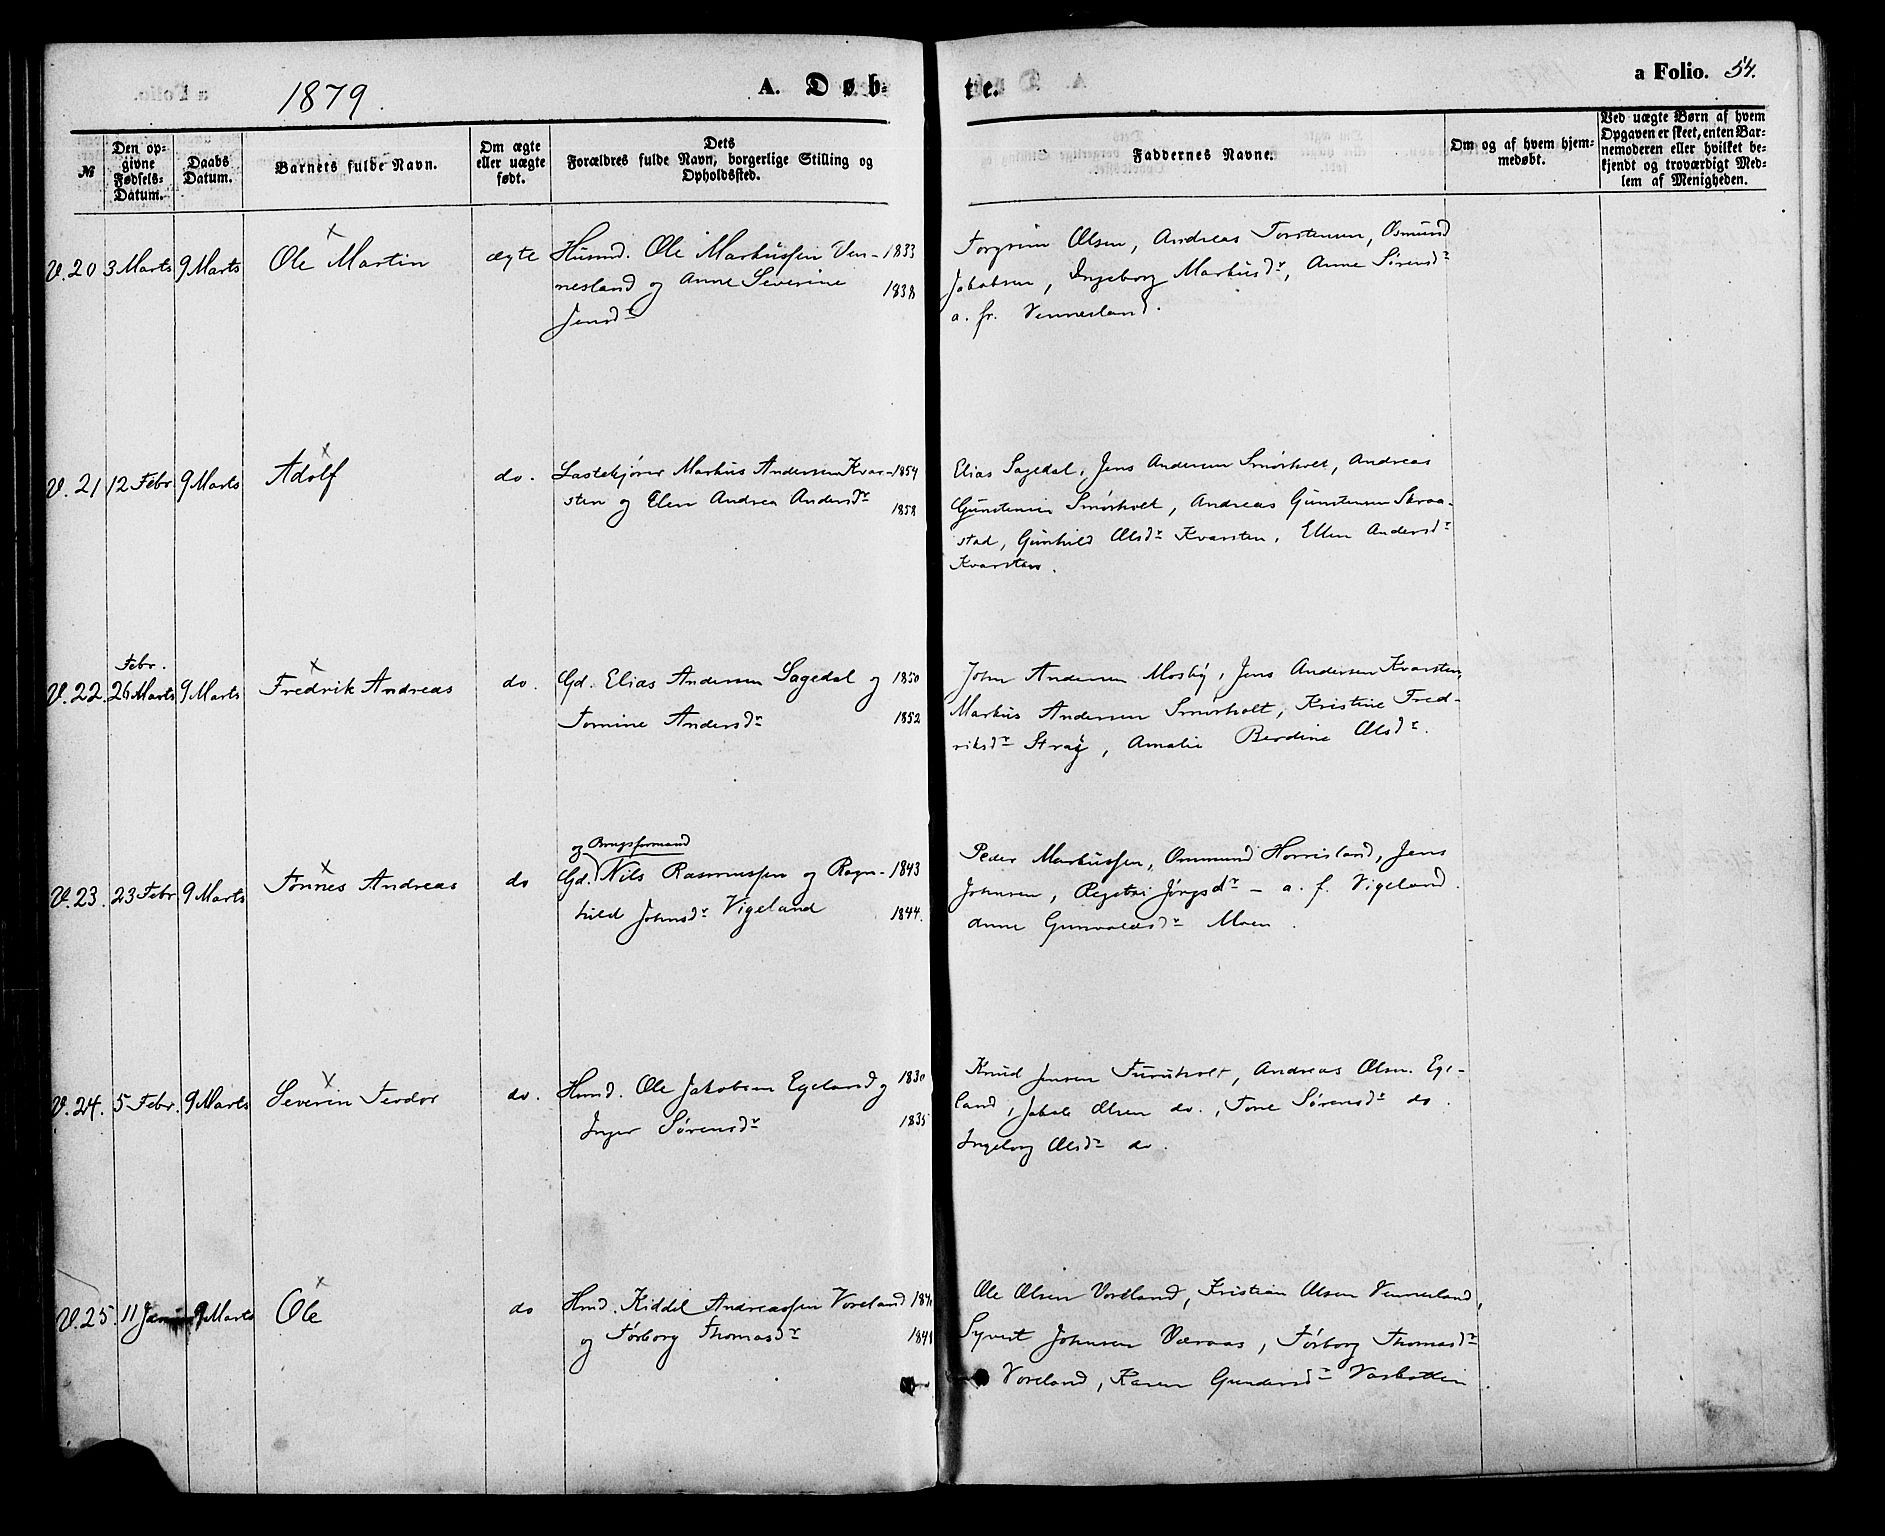 1879.
A. Døb-
te.
a Folio. 54.
№
Den op-
givne
Fødsels-
Datum.
Daabs
Datum.
Barnets fulde Navn.
Om ægte
eller uægte
født.
Dets
Forældres fulde Navn, borgerlige Stilling og
Opholdssted.
Faddernes Navne.
Om og af hvem hjem-
medøbt.
Ved uægte Børn af hvem
Opgaven er skeet, enten Bar-
nemoderen eller hvilket be-
kjendt og troværdigt Med-
lem af Menigheden.
V. 20 3 Marts 9 Marts Ole Martin ægte Husmd. Ole Markussen Ven- 1833
nesland og Anne Severine 1838
Jensdr
Torgrim Olsen, Andreas Torstensen, Osmund
Jakobsen, Ingeborg Markusdr, Anne Sørensdr
a. fr. Vennesland.
V. 21 12 Febr 9 Marts Adolf do. Lastekjører Markus Andersen Kvar- 1854
sten og Elen Andrea Andersdr 1858
Elias Sagedal, Jens Andersen Smørholt, Andreas
Gunstensen Smørholt, Andreas Gunstensen Skraa-
stad, Gunhild Olsdr Kvarsten, Ellen Andersdr
Kvarsten.
Febr.
V. 22. 26 Marts 9 Marts Fredrik Andreas do. Gd. Elias Andersen Sagedal og 1850
Tomine Andersdr 1852
John Andersen Mosby, Jens Andersen Kvarsten,
Markus Andersen Smørholt, Kristine Fred-
riksdr Stray, Amalie Berdine Olsdr.
og Brugsformand
V. 23. 23 Febr 9 Marts Tønnes Andreas do Gd. Nils Rasmussen og Ragn- 1843
hild Johnsdr Vigeland 1844.
Peder Markussen, Ommund Horrisland, Jens
Johnsen, Jørgsdr - a. f. Vigeland.
Anne Gunvaldsdr Moen.
V. 24. 5 Febr. 9 Marts Severin Teodor do. Hmd. Ole Jakobsen Egeland og 1830
Inger Sørensdr 1835
Knud Jensen Furuholt, Andreas Olsen Ege-
land, Jakob Olsen do., Tone Sørensdr do.
Ingeborg Olsdr do.
V. 25. 11 9 Marts Ole do Hmd. Kiddel Andreassen Voreland
og Tørborg Thomasdr
Ole Olsen Voreland, Kristian Olsen Vennesland,
Syvert Johnsen Væraas, Tørborg Thomasdr
Voreland, Karen Gundersdr Vasbotten